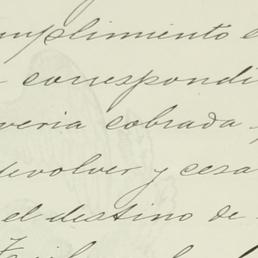 mplimiento e
correspondi
veria cobrada
devolver y cesa
el destino de